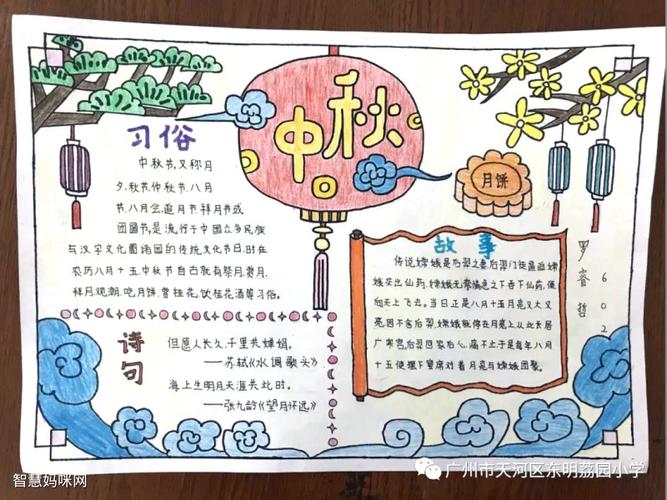 中秋
习俗
中秋节,又称月
夕,秋节,仲秋节,八月
节,八月会,追月节,拜月节或
团圆节,是流行于中国众多民族
与汉字文化圈诸国的传统文化节日,时在
农历八月十五,中秋节自古就有祭月,赏月,
拜月,观潮,吃月饼,赏桂花,饮桂花酒等习俗。
月饼
诗句
但愿人长久,千里共婵娟。
——苏轼《水调歌头》
海上生明月天涯共此时。
——张九龄《望月怀远》
故事
传说嫦娥是后羿之妻后羿门徒逼迫嫦
娥交出仙药,嫦娥无奈情急之下吞下仙药,便
向天上飞去。当日正是八月十五月亮又大又
亮因不舍后羿,嫦娥就停在月亮上从此长居
广寒宫,后羿回家后心痛不止于是每年八月
十五便摆下宴席对着月亮与嫦娥团聚。
罗睿哲
602
智慧妈咪网
广州市天河区东明荔园小学